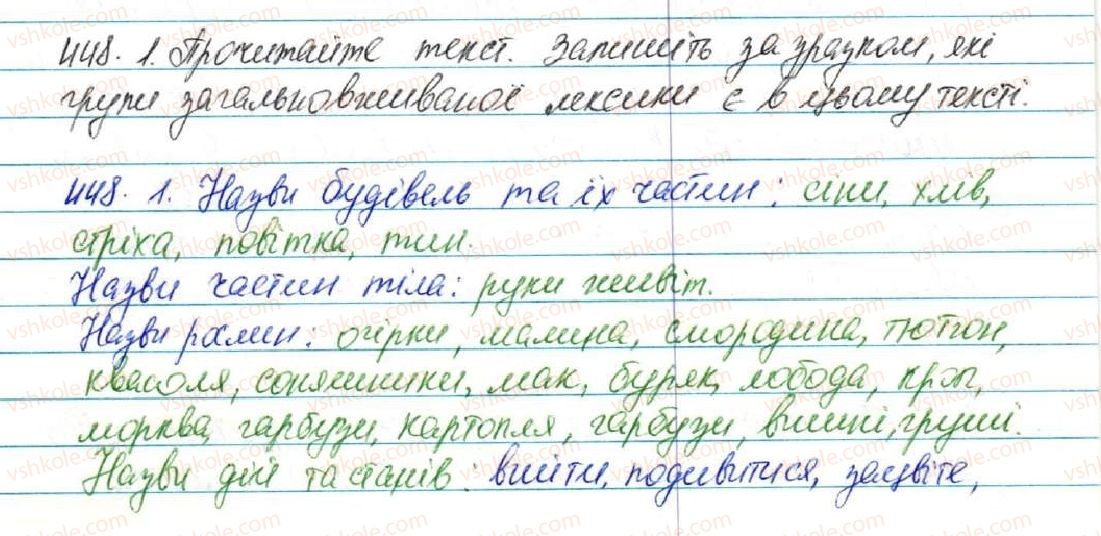 448. 1. Прочитайте текст. Запишіть за зразком, які
групи загальновживаної лексики є в цьому тексті.
448. 1. Назви будівель та їх частин: сіни, хлів,
стріха, повітка, тин.
Назви частин тіла: руки живіт.
Назви рослин: огірки, малина, смородина, тютюн,
квасоля, соняшники, мак, буряк, лобода, кріп,
морква, гарбузи, картопля, гарбузи, вишні, груші.
Назви дій та станів: вийти, подивитися, зацвіте,